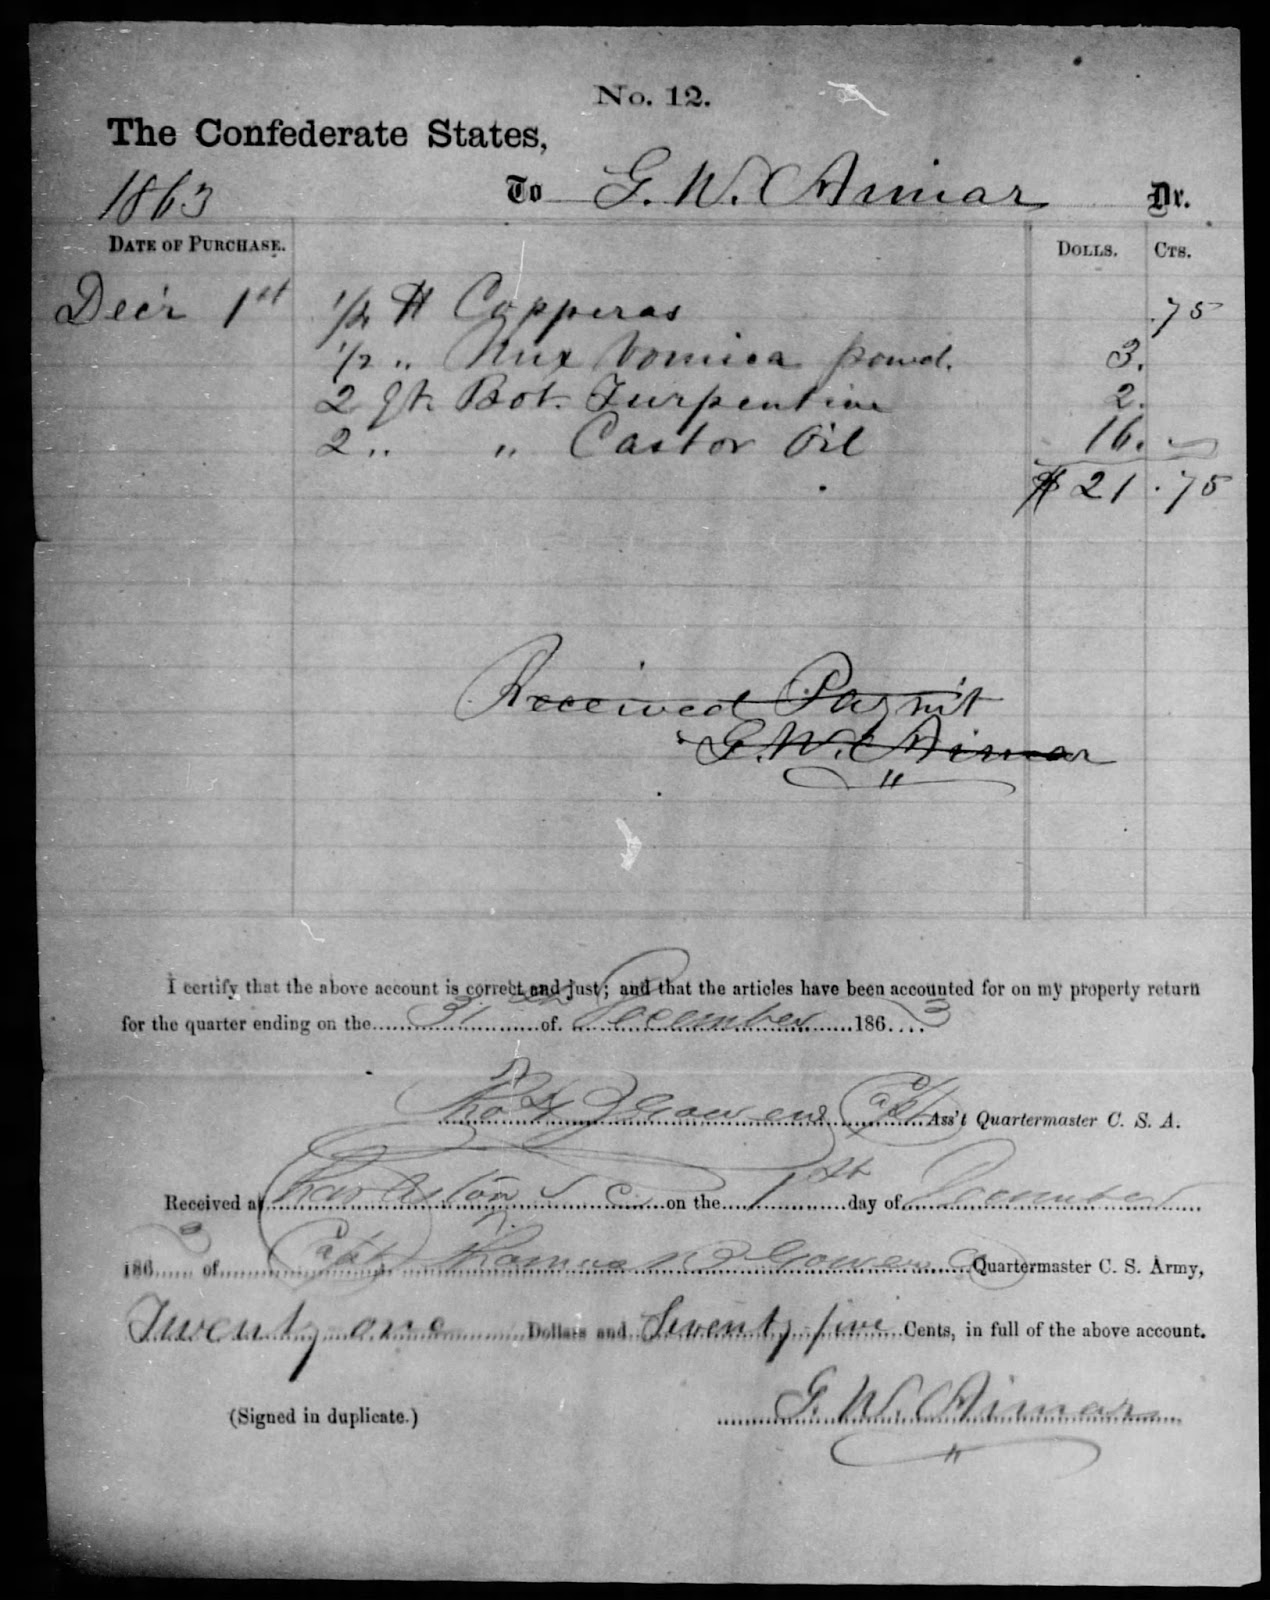 No. 12.
The Confederate States,
1863 To G. W. Aimar Dr.
DATE OF PURCHASE. DOLLS. CTS.
Dec'r 1st 1/2 ℔ Copperas .75
1/2 " Nux Vomica powd. 3.
2 qt. Bot. Turpentine 2.
2 " " Castor Oil 16.
$ 21.75
Received Paym't
G. W. Aimar
"
I certify that the above account is correct and just; and that the articles have been accounted for on my property return
for the quarter ending on the 31st of December 1863
Capt Ass't Quartermaster C. S. A.
Received at Charleston S C on the 1st day of December
1863 of Capt Thomas B Gowen Quartermaster C. S. Army,
Twenty one Dollars and Seventy five Cents, in full of the above account.
(Signed in duplicate.) G. W. Aimar
"